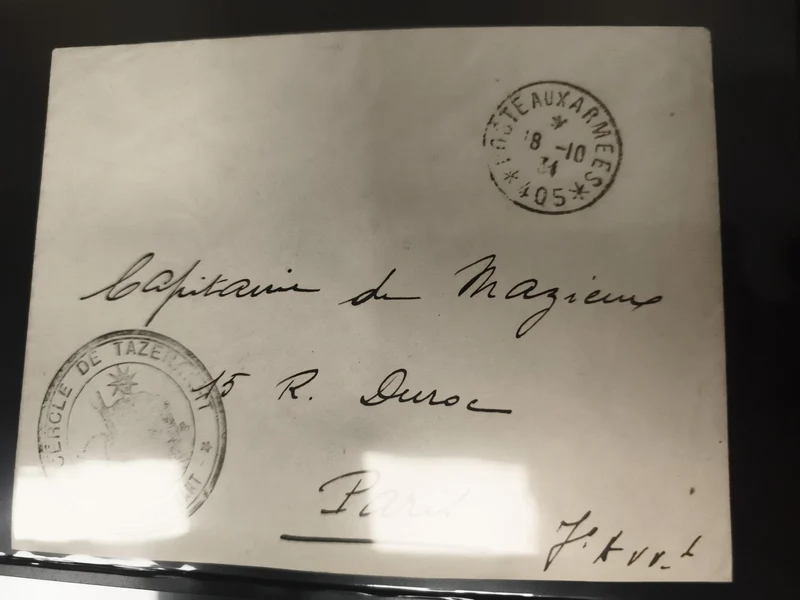 POSTE AUX ARMEES
18 -10
34
* 405 *
Capitaine de Mazieux
15 R. Duroc
Paris
CERCLE DE